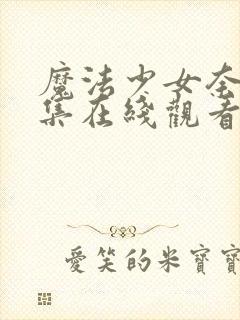 魔法少女奈
集在綫觀看
愛笑的米寶寶